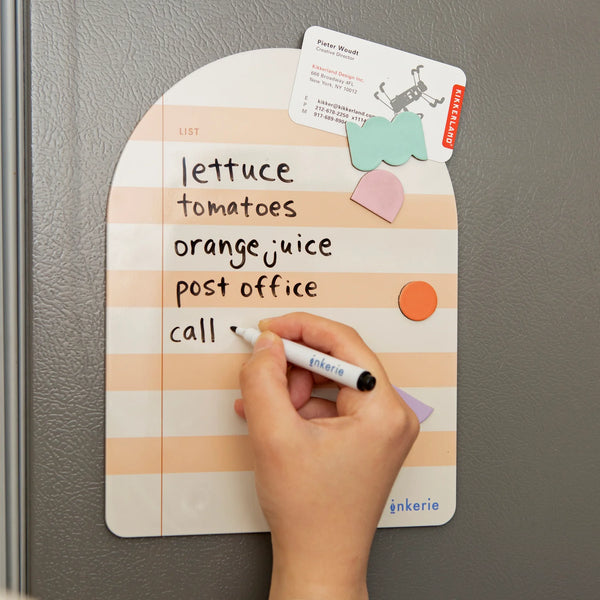 Pieter Woudt
Creative Director
Kikkerland Design Inc.
666 Broadway 4FL
New York, NY 10012
E kikker@kikkerland.com
P 212-678-2250 x114
M 917-689-8904
KIKKERLAND
LIST
lettuce
tomatoes
orange juice
post office
call
inkerie
inkerie